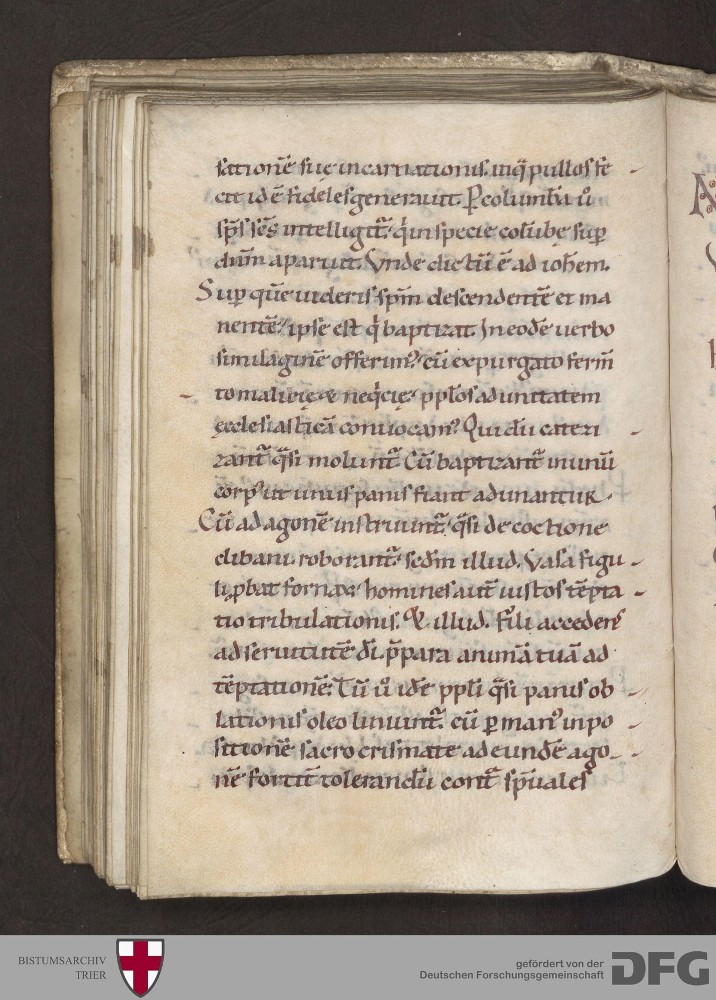 sationē suę incarnationis. inq̄ pullos fe
cit id ē fideles generauit. P colum̄ba u̅
sp̄s sc̄s intelligit̄. q̇ in specie colūbę sup
dn̄m aparuit. Vnde dictū ē ad ioh̄em.
Sup quē uideris sp̄m descendentē et ma
nentē. ipse est q̇ baptizat. In eodē uerbo
similaginē offerim᾽. cū expurgato ferm̄
to malicię & neq̇cię. ppl̄os ad unitatem
ęcclesiasticā conuocam᾽. Qui dū cateri
zant̄ q̄si molunt̄. Cū baptizant̄ in unū
corp᾽ ut unus panis fiant adunantur.
Cū ad agonē instruunt̄. q̄si decoctione
clibani. roborant̄. scdm̄ illud. Vasa figu
li ꝓbat fornax. homines aut̄ iustos tēpta
tio tribulationis. & illud. Fili accedens
ad seruitutē dī. p̄para animā tuā ad
tēptationē. Tū u̅ idē ppl̄i q̄si panis ob
lationis oleo linunt̄. cū p man᾽ inpo
sitionē sacro crismate ad eundē ago
nē fortit̄ tolerandū cont̄ sp̄uales
BISTUMSARCHIV
TRIER
gefördert von der
Deutschen Forschungsgemeinschaft
DFG